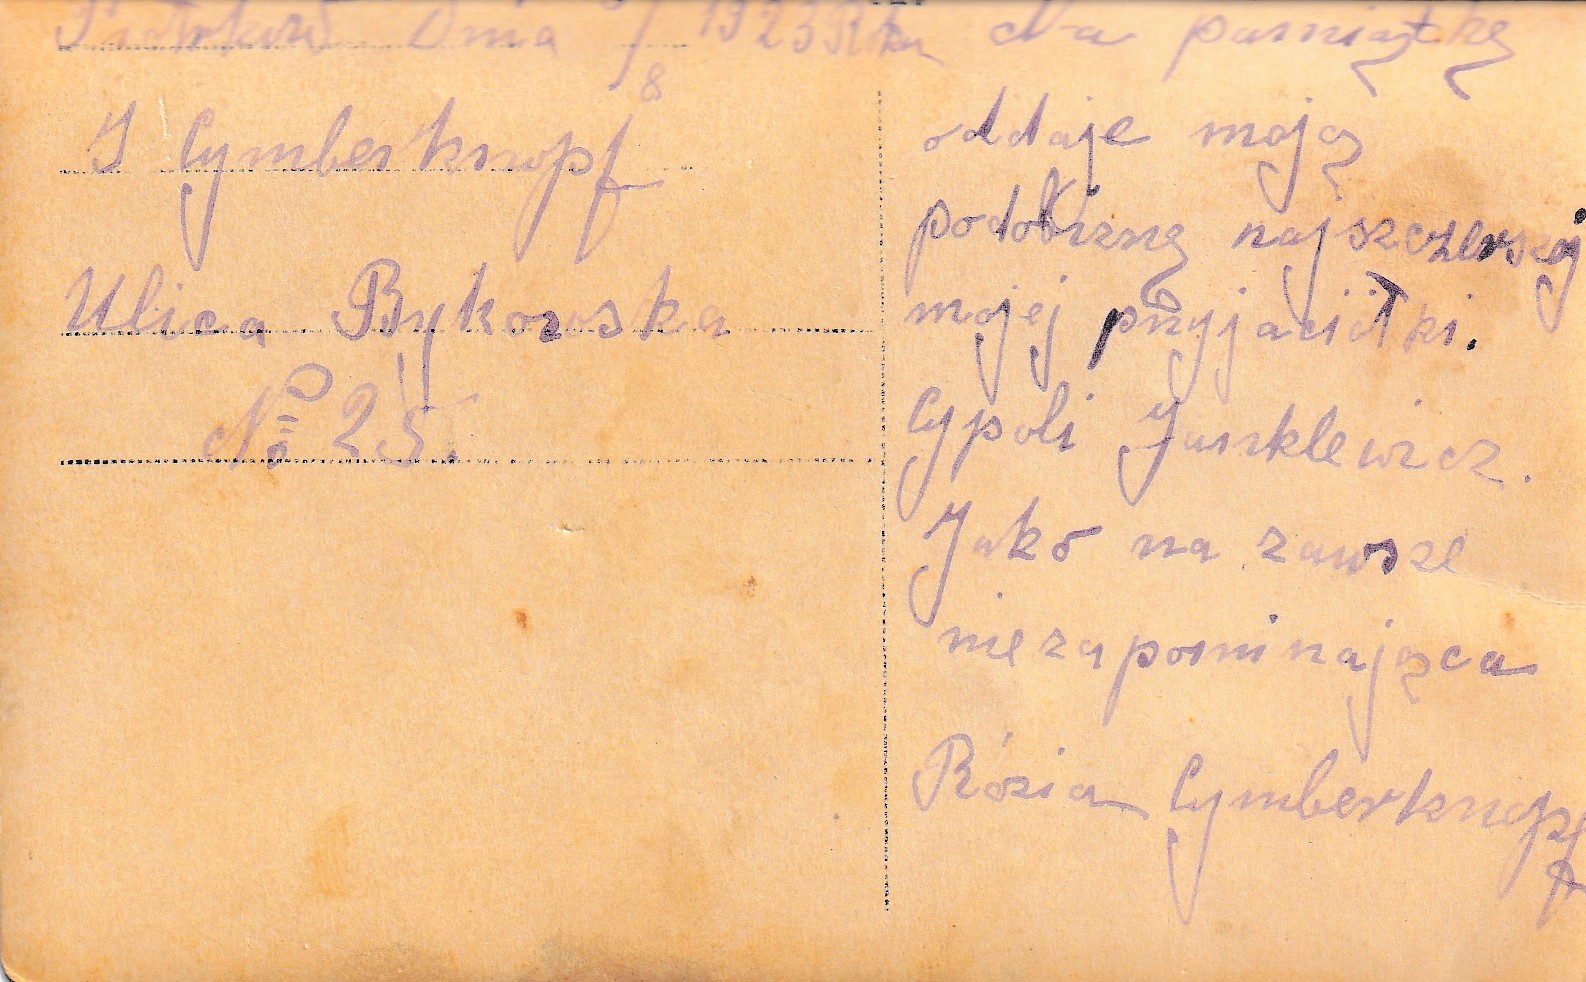 Piotrków Dnia /8 1923 Roku
J Cymberknopf
Ulica Bykowska
№ 25.
Na pamiątkę
oddaje moją
podobiznę najszczerszej
mojej przyjaciółki.
Cypoli Janklewicz.
Jako na zawsze
niezapominająca
Rózia Cymberknopf